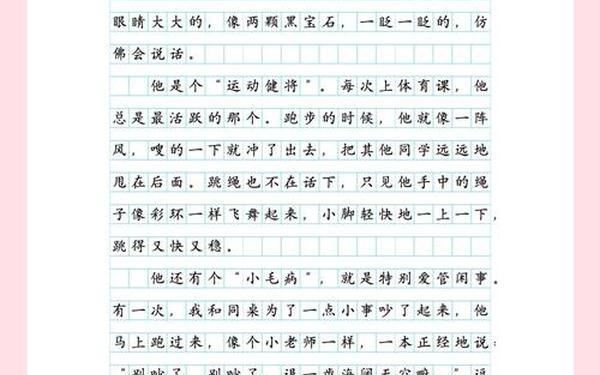 眼睛大大的，像两颗黑宝石，一眨一眨的，仿
佛会说话。
他是个“运动健将”。每次上体育课，他
总是最活跃的那个。跑步的时候，他就像一阵
风，嗖的一下就冲了出去，把其他同学远远地
甩在后面。跳绳也不在话下，只见他手中的绳
子像彩环一样飞舞起来，小脚轻快地一上一下，
跳得又快又稳。
他还有个“小毛病”，就是特别爱管闲事。
有一次，我和同桌为了一点小事吵了起来，他
马上跑过来，像个小老师一样，一本正经地说：
“别吵了，别吵了，退一步海阔天空嘛。”